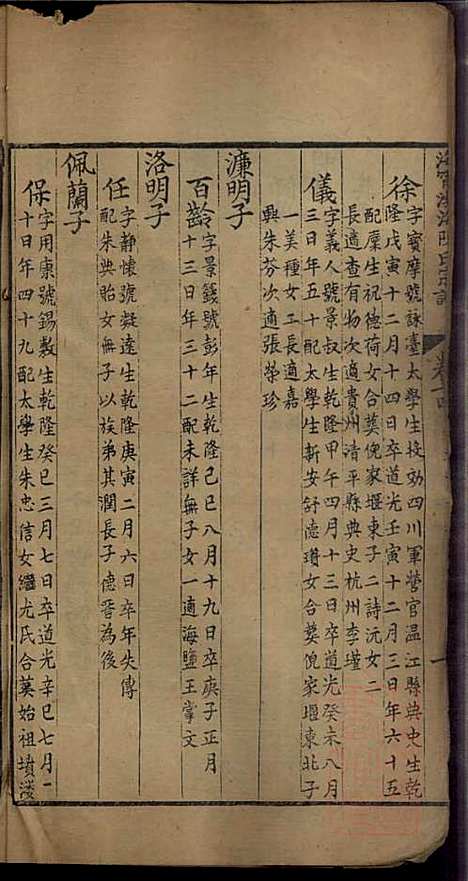 海寧渤海陳氏宗譜 卷十四
徐
字寶摩號詠臺太學生校効四川軍營官溫江縣典史生乾
隆戊寅十二月十四日卒道光壬寅十二月三日年六十五
配糜生祝德荷女合葬倪家堰東子二詩沅女二
長適查有物次適貴州清平縣典史杭州李瑾
儀
字義人號景叔生乾隆甲午四月十三日卒道光癸未八月
三日年五十配太學生新安舒德瓚女合葬倪家堰東北子
一美種女二長適嘉
興朱芬次適張榮珍
濂明子
百齡
字景籛號彭年生乾隆己巳八月十九日卒庚子正月
十三日年三十二配未詳無子女一適海鹽王掌文
洛明子
任
字靜懷號凝遠生乾隆庚寅二月六日卒年失傳
配朱典貽女無子以族弟其潤長子德晉為後
佩蘭子
保
字用康號錫敷生乾隆癸巳三月七日卒道光辛巳七月一
十日年四十九配太學生朱忠信女繼尤氏合葬始祖墳淩